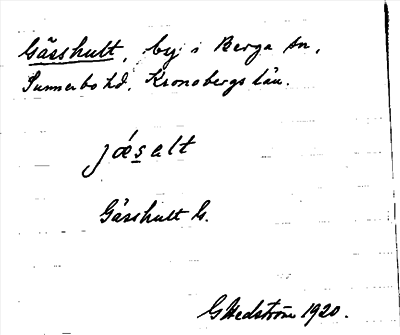 Gässhult, by i Berga sn,
Sunnerbo hd. Kronobergs län.
jǽsalt
Gässhult G.
G Hedström 1920.